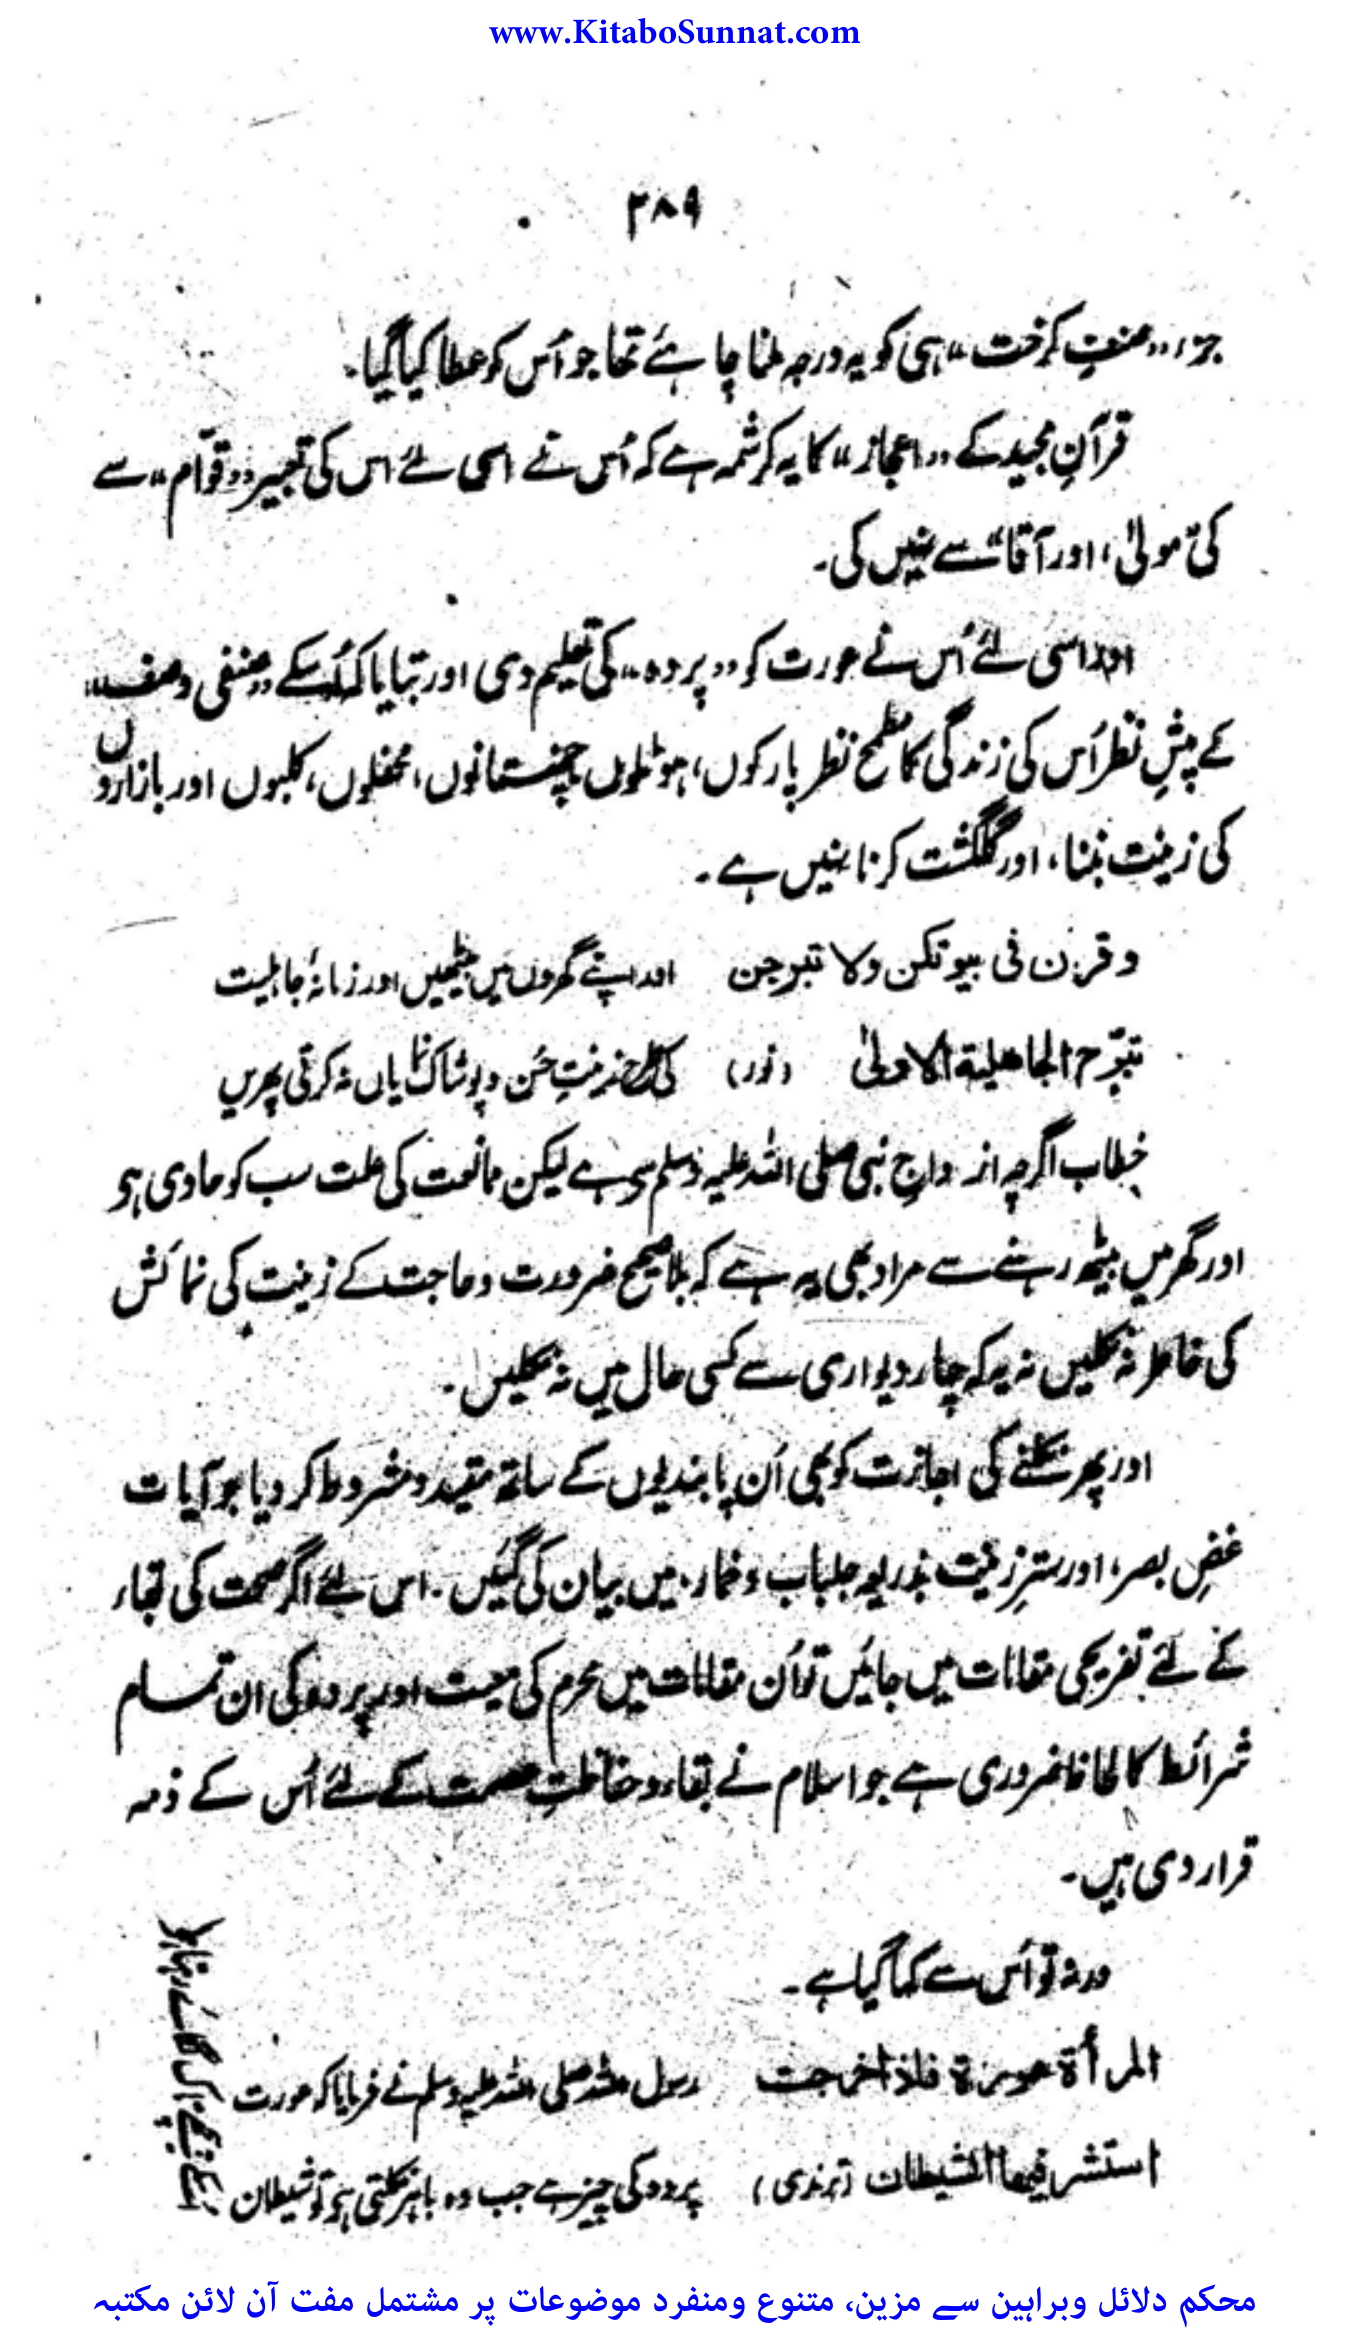 www.KitaboSunnat.com
۳۸۹
جزء، "صنفِ کرخت" ہی کو یہ درجہ ملنا چاہئے تھا جو اُس کو عطا کیا گیا۔
قرآنِ مجید کے "اعجاز" کا یہ کرشمہ ہے کہ اُس نے اسی لئے اس کی تعبیر "قوّام" سے
کی "مولیٰ، اور آقا" سے نہیں کی۔
اور اسی لئے اُس نے عورت کو "پردہ" کی تعلیم دی اور بتایا کہ اُسکے "صنفی وصف"
کے پیشِ نظر اُس کی زندگی کا مطمح نظر پارکوں، ہوٹلوں چمنستانوں، محفلوں، کلبوں اور بازاروں
کی زینت بننا، اور گلگشت کرنا نہیں ہے۔
وقرن فی بیوتکن ولا تبرجن اور اپنے گھروں میں بیٹھیں اور زمانۂ جاہلیت
تبرّج الجاھلیة الاولیٰ (نور) کی طرح زینتِ حُسن و پوشاک نمایاں نہ کرتی پھریں
خطاب اگرچہ ازواجِ نبی صلی اللہ علیہ وسلم سے ہے لیکن ممانعت کی علت سب کو حاوی ہی
اور گھر میں بیٹھ رہنے سے مراد بھی یہ ہے کہ بلا صحیح ضرورت و حاجت کے زینت کی نمائش
کی خاطر نہ نکلیں نہ یہ کہ چار دیواری سے کسی حال میں نہ نکلیں۔
اور پھر نکلنے کی اجازت کو بھی اُن پابندیوں کے ساتھ مقید و مشروط کر دیا جو آیات
غضِ بصر، اور سترِ زینت بذریعہ جلباب و خمار، میں بیان کی گئیں۔ اس لئے اگر صحت کی بقاء
کے لئے تفریحی مقامات میں جائیں تو اُن مقامات میں محرم کی معیت اور پردہ کی ان تمام
شرائط کا لحاظ ضروری ہے جو اسلام نے بقاء و حفاظتِ عصمت کے لئے اُس کے ذمہ
قرار دی ہیں۔
ورنہ تو اُس سے کہا گیا ہے۔
المرأة عورة فاذا خرجت رسول اللہ صلی اللہ علیہ وسلم نے فرمایا کہ عورت
استشرفیھا الشیطان (ترمذی) پردہ کی چیز ہے جب وہ باہر نکلتی ہی تو شیطان
محکم دلائل وبراہین سے مزین، متنوع ومنفرد موضوعات پر مشتمل مفت آن لائن مکتبہ